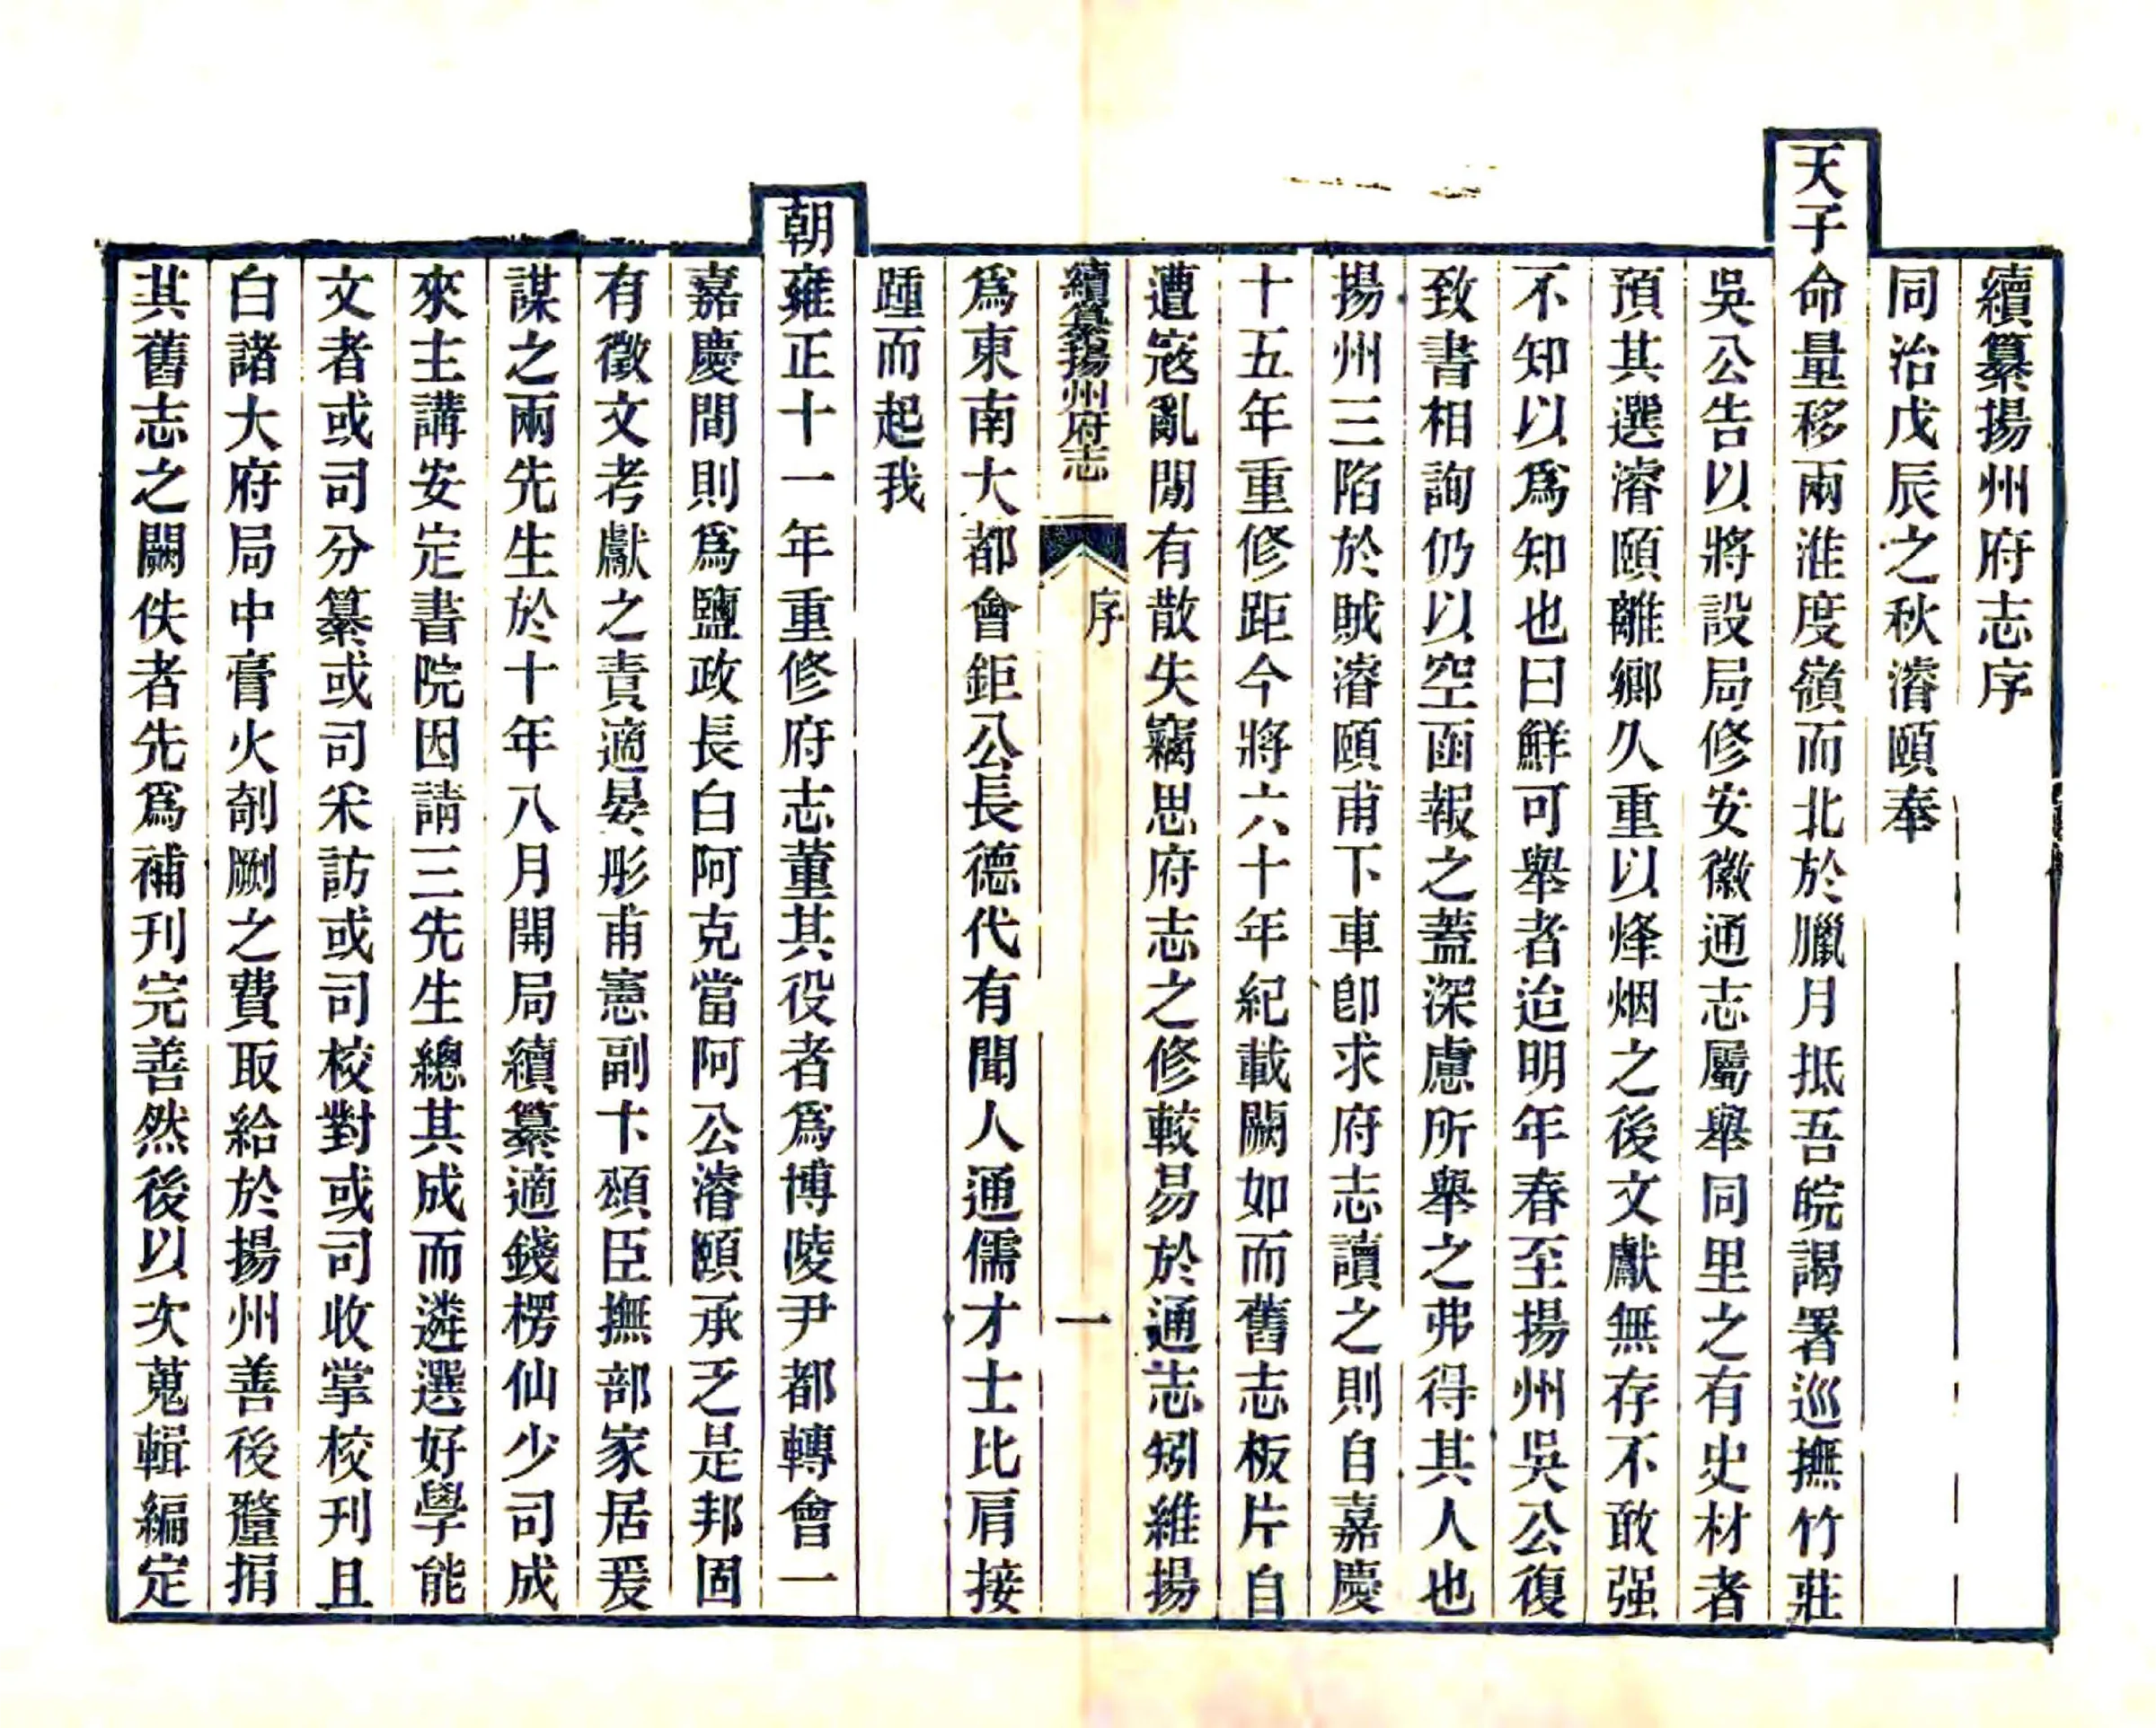 續纂揚州府志序
同治戊辰之秋濬頤奉
天子命量移兩淮度嶺而北於臘月抵吾皖謁署巡撫竹莊
吳公告以將設局修安徽通志屬舉同里之有史材者
預其選濬頤離鄉久重以烽烟之後文獻無存不敢强
不知以爲知也曰鮮可舉者迨明年春至揚州吳公復
致書相詢仍以空函報之蓋深慮所舉之弗得其人也
揚州三陷於賊濬頤甫下車卽求府志讀之則自嘉慶
十五年重修距今將六十年紀載闕如而舊志板片自
遭寇亂閒有散失竊思府志之修較易於通志矧維揚
續纂揚州府志
序
一
爲東南大都會鉅公長德代有聞人通儒才士比肩接
踵而起我
朝雍正十一年重修府志董其役者爲博陵尹都轉會一
嘉慶間則爲鹽政長白阿克當阿公濬頤承乏是邦固
有徵文考獻之責適晏彤甫憲副卞頌臣撫部家居爰
謀之兩先生於十年八月開局續纂適錢楞仙少司成
來主講安定書院因請三先生總其成而遴選好學能
文者或司分纂或司采訪或司校對或司收掌校刊且
白諸大府局中膏火剞劂之費取給於揚州善後釐捐
其舊志之闕佚者先爲補刊完善然後以次蒐輯編定